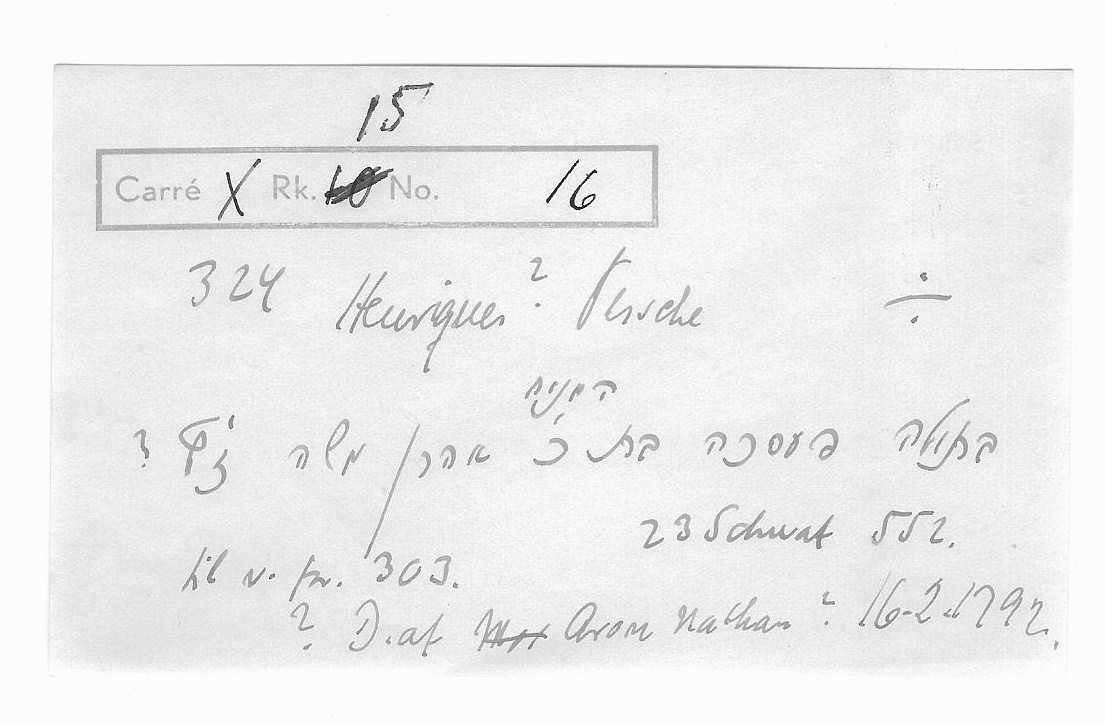 15
Carré X Rk. No. 16
324 Henriques ? Pessche ÷
המנוח
בתולה פעסכה בת כ׳ אהרן / משה ?
23 Schwat 552.
til v. for. 303.
? D. af Aron Nathan ? 16-2-1792.